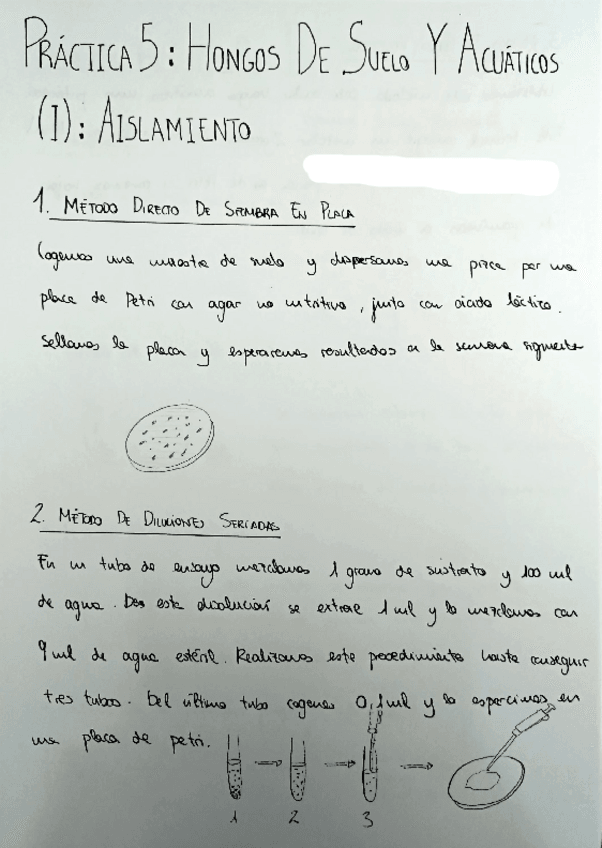 PRÁCTICA 5: HONGOS DE SUELO Y ACUÁTICOS
(I): AISLAMIENTO
1. MÉTODO DIRECTO DE SIEMBRA EN PLACA
Cogemos una muestra de suelo y dispersamos una pizca por una
placa de Petri con agar no nutritivo, junto con ácido láctico.
Sellamos la placa y esperaremos resultados a la semana siguiente
2. MÉTODO DE DILUCIONES SERIADAS
En un tubo de ensayo mezclamos 1 gramo de sustrato y 100 ml
de agua. De esta disolución se extrae 1 ml y lo mezclamos con
9 ml de agua estéril. Realizamos este procedimiento hasta conseguir
tres tubos. Del último tubo cogemos 0,1 ml y lo esparcimos en
una placa de petri.
1 2 3